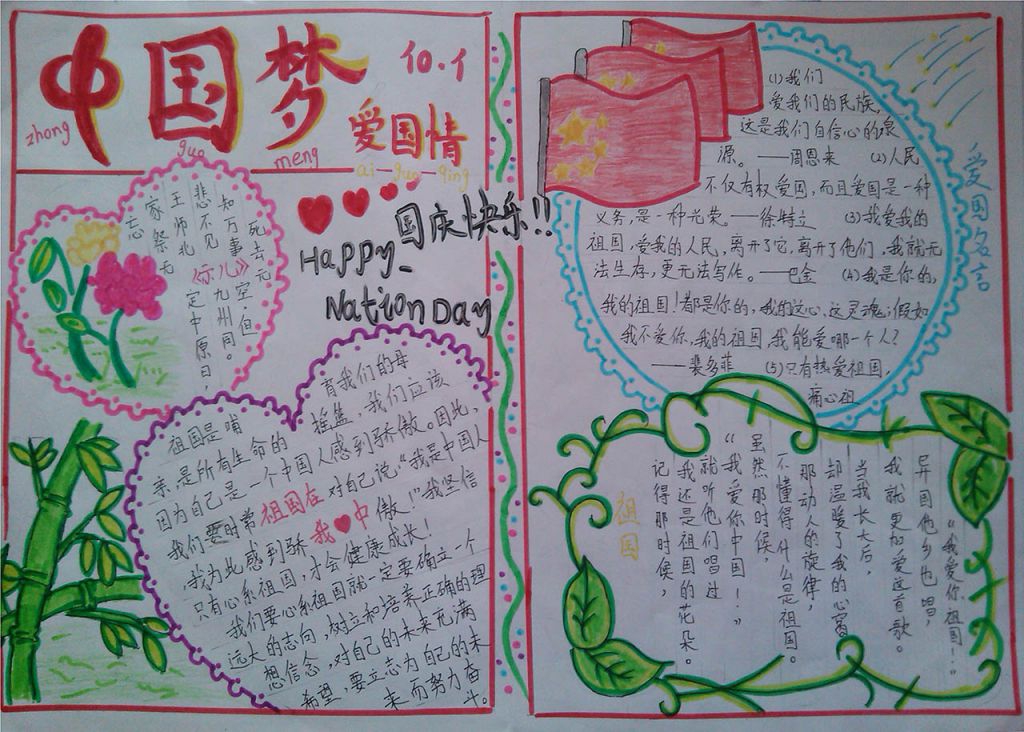 中国梦
zhong
guo
meng
10.1
爱国情
ai-guo-qing
国庆快乐!!
Happy
Nation Day
《示儿》
死去元
知万事空，但
悲不见九州同。
王师北定中原日，
家祭无
忘
祖国是哺
育我们的母
亲，是所有生命的摇篮，我们应该
因为自己是一个中国人感到骄傲。因此，
我们要时常对自己说：“我是中国人
我为此感到骄傲！”我坚信
祖国在
我 中
只有心系祖国，才会健康成长！
我们要心系祖国就一定要确立一个
远大的志向，树立和培养正确的理
想信念，对自己的未来充满
希望，要立志为自己的未
来而努力奋
斗。
爱国名言
(1)我们
爱我们的民族，
这是我们自信心的泉
源。——周恩来 (2)人民
不仅有权爱国，而且爱国是一种
义务，是一种光荣。——徐特立 (3)我爱我的
祖国，爱我的人民，离开了它，离开了他们，我就无
法生存，更无法写作。——巴金 (4)我是你的，
我的祖国！都是你的，我的这心、这灵魂；假如
我不爱你，我的祖国，我能爱哪一个人？
——裴多菲 (5)只有热爱祖国，
痛心祖
“我爱你，祖国！”
异国他乡也唱，
我就更加爱这首歌。
当我长大后，
却温暖了我的心窝
那动人的旋律，
不懂得什么是祖国。
虽然那时候，
“我爱你中国！”
就听他们唱过
我还是祖国的花朵。
记得那时候，
祖国